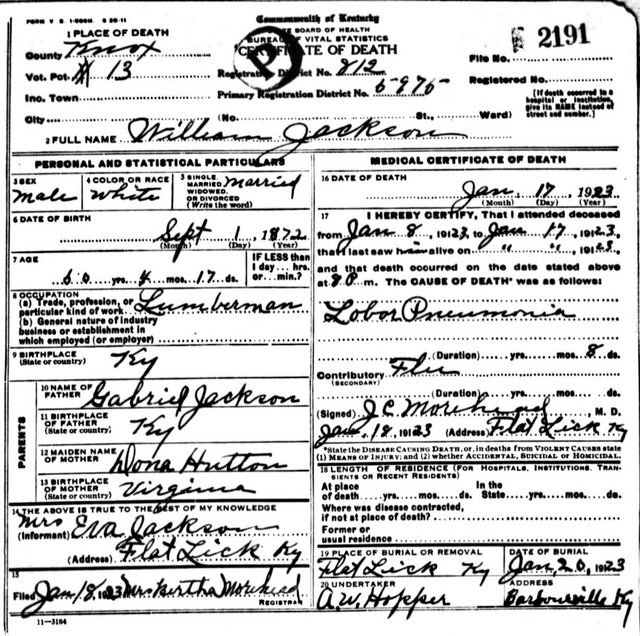 FORM V S 1-500M 6 20-11
Commonwealth of Kentucky
STATE BOARD OF HEALTH
BUREAU OF VITAL STATISTICS
CERTIFICATE OF DEATH
1 PLACE OF DEATH
County Knox
Vot. Pct. # 13
Inc. Town
City (No. St., Ward)
Registration District No. 812
Primary Registration District No. 6975
File No. 2191
Registered No.
[If death occurred in a hospital or institution, give its NAME instead of street and number.]
2 FULL NAME William Jackson
PERSONAL AND STATISTICAL PARTICULARS
3 SEX Male
4 COLOR OR RACE White
5 SINGLE, MARRIED, WIDOWED, OR DIVORCED (Write the word) Married
6 DATE OF BIRTH
Sept 1, 1872
(Month) (Day) (Year)
7 AGE
50 yrs. 4 mos. 17 ds.
IF LESS than 1 day... hrs. or... min.?
8 OCCUPATION
(a) Trade, profession, or particular kind of work Lumberman
(b) General nature of industry
business or establishment in
which employed (or employer)
9 BIRTHPLACE
(State or country) Ky
PARENTS
10 NAME OF FATHER Gabriel Jackson
11 BIRTHPLACE OF FATHER (State or country) Ky
12 MAIDEN NAME OF MOTHER Dona Hutton
13 BIRTHPLACE OF MOTHER (State or country) Virginia
14 THE ABOVE IS TRUE TO THE BEST OF MY KNOWLEDGE
(Informant) Mrs Eva Jackson
(Address) Flat Lick Ky
15
Filed Jan 18, 1923 Mrs Bertha Morehead
REGISTRAR
11-3184
MEDICAL CERTIFICATE OF DEATH
16 DATE OF DEATH
Jan 17, 1923
(Month) (Day) (Year)
17 I HEREBY CERTIFY, That I attended deceased
from Jan 8, 1923, to Jan 17, 1923,
that I last saw him alive on " ", 1923,
and that death occurred on the date stated above
at 8 P.m. The CAUSE OF DEATH* was as follows:
Lobor Pneumonia
(Duration) yrs. mos. 8 ds.
Contributory Flu
(SECONDARY)
(Duration) yrs. mos. ds.
(Signed) J.C. Morehead, M. D.
Jan. 18, 1923 (Address) Flat Lick Ky
*State the DISEASE CAUSING DEATH, or, in deaths from VIOLENT CAUSES state
(1) MEANS OF INJURY; and (2) whether ACCIDENTAL, SUICIDAL or HOMICIDAL.
18 LENGTH OF RESIDENCE (FOR HOSPITALS, INSTITUTIONS, TRANSIENTS OR RECENT RESIDENTS)
At place of death yrs. mos. ds. In the State yrs. mos. ds.
Where was disease contracted,
if not at place of death?
Former or
usual residence
19 PLACE OF BURIAL OR REMOVAL Flat Lick Ky
DATE OF BURIAL Jan 20, 1923
20 UNDERTAKER A.W. Hopper
Barbourville Ky